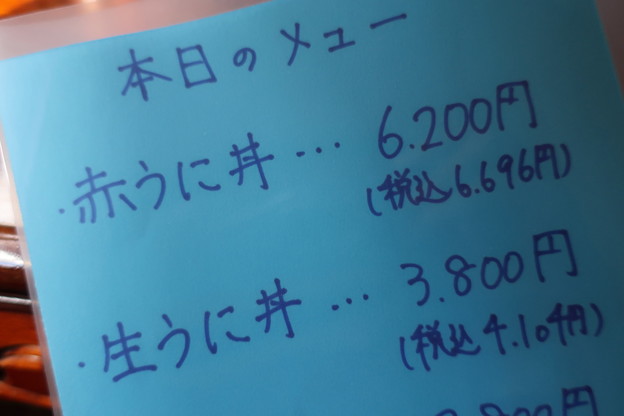 本日のメュー
・赤うに丼… 6.200円
(税込6.696円)
・生うに丼… 3.800円
(税込4.104円)